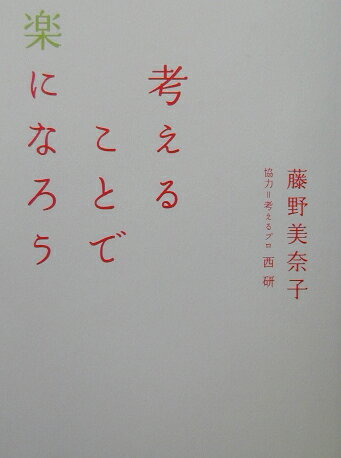 考える
ことで
楽になろう
藤野美奈子
協力=考えるプロ 西研